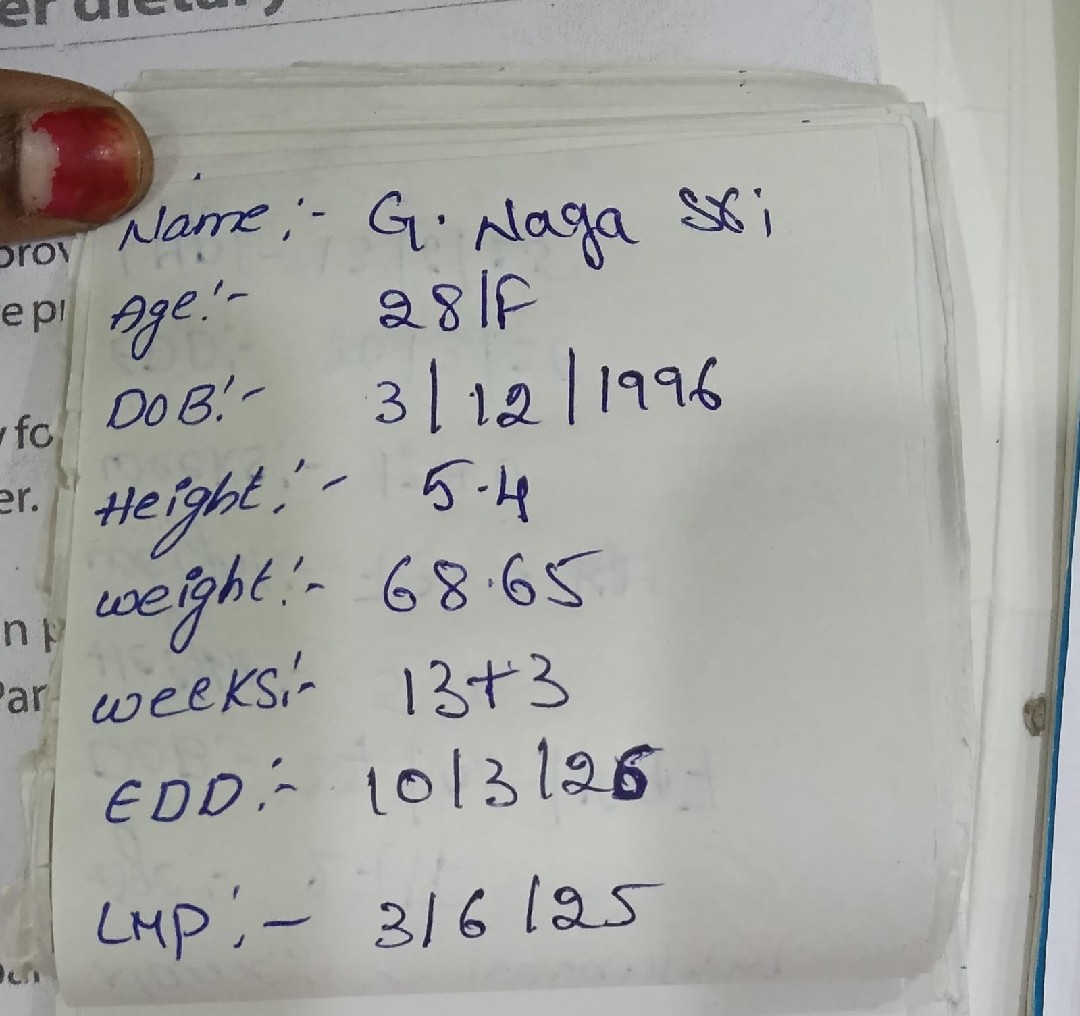 er dietary
Name :- G. Naga Sri
Age :- 28/F
DOB :- 3/12/1996
Height :- 5.4
weight :- 68.65
weeks :- 13+3
EDD :- 10/3/26
LMP :- 3/6/25
prov
e pr
fo
er.
n p
Par